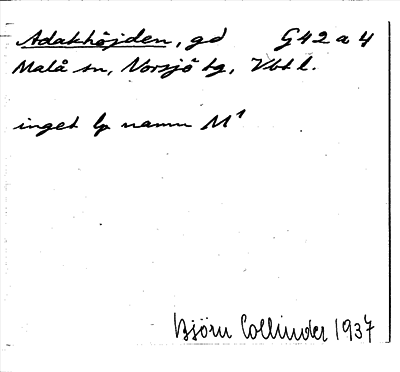 Adakhöjden, gd G42a4
Malå sn, Norsjö tg, Vbtl.
inget lp namn M¹
Björn Collinder 1937